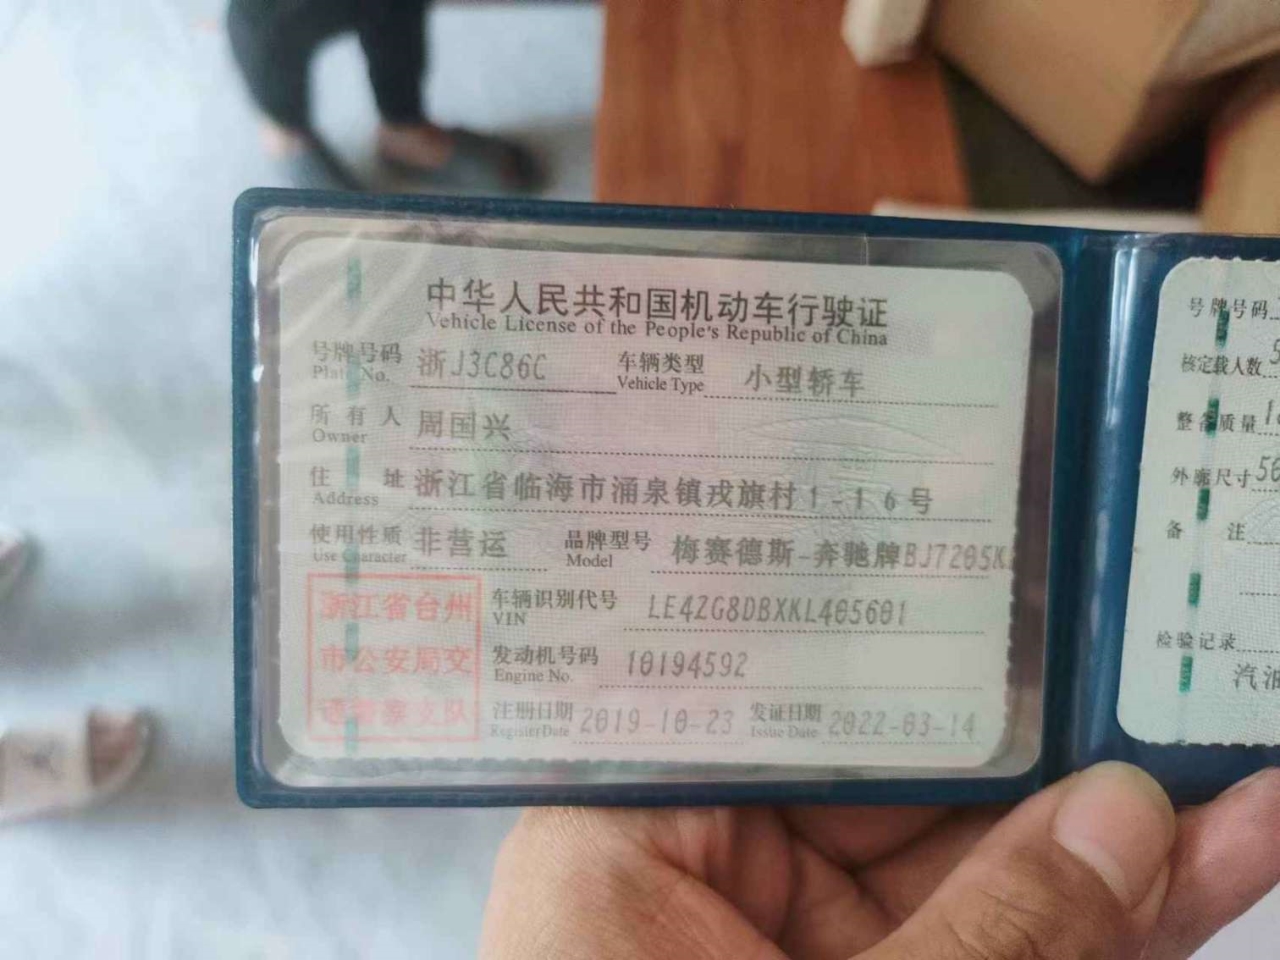 中华人民共和国机动车行驶证
Vehicle License of the People's Republic of China
号牌号码 浙J3C86C 车辆类型 小型轿车
Plate No. Vehicle Type
所有人 周国兴
Owner
住址 浙江省临海市涌泉镇戎旗村1-16号
Address
使用性质 非营运 品牌型号 梅赛德斯-奔驰牌BJ7205K
Use Character Model
浙江省台州
市公安局交
通警察支队
车辆识别代号 LE4ZG8DBXKL405601
VIN
发动机号码 10194592
Engine No.
注册日期 2019-10-23 发证日期 2022-03-14
Register Date Issue Date
号牌号码
核定载人数 5
整备质量
外廓尺寸 56
备注
检验记录
汽油